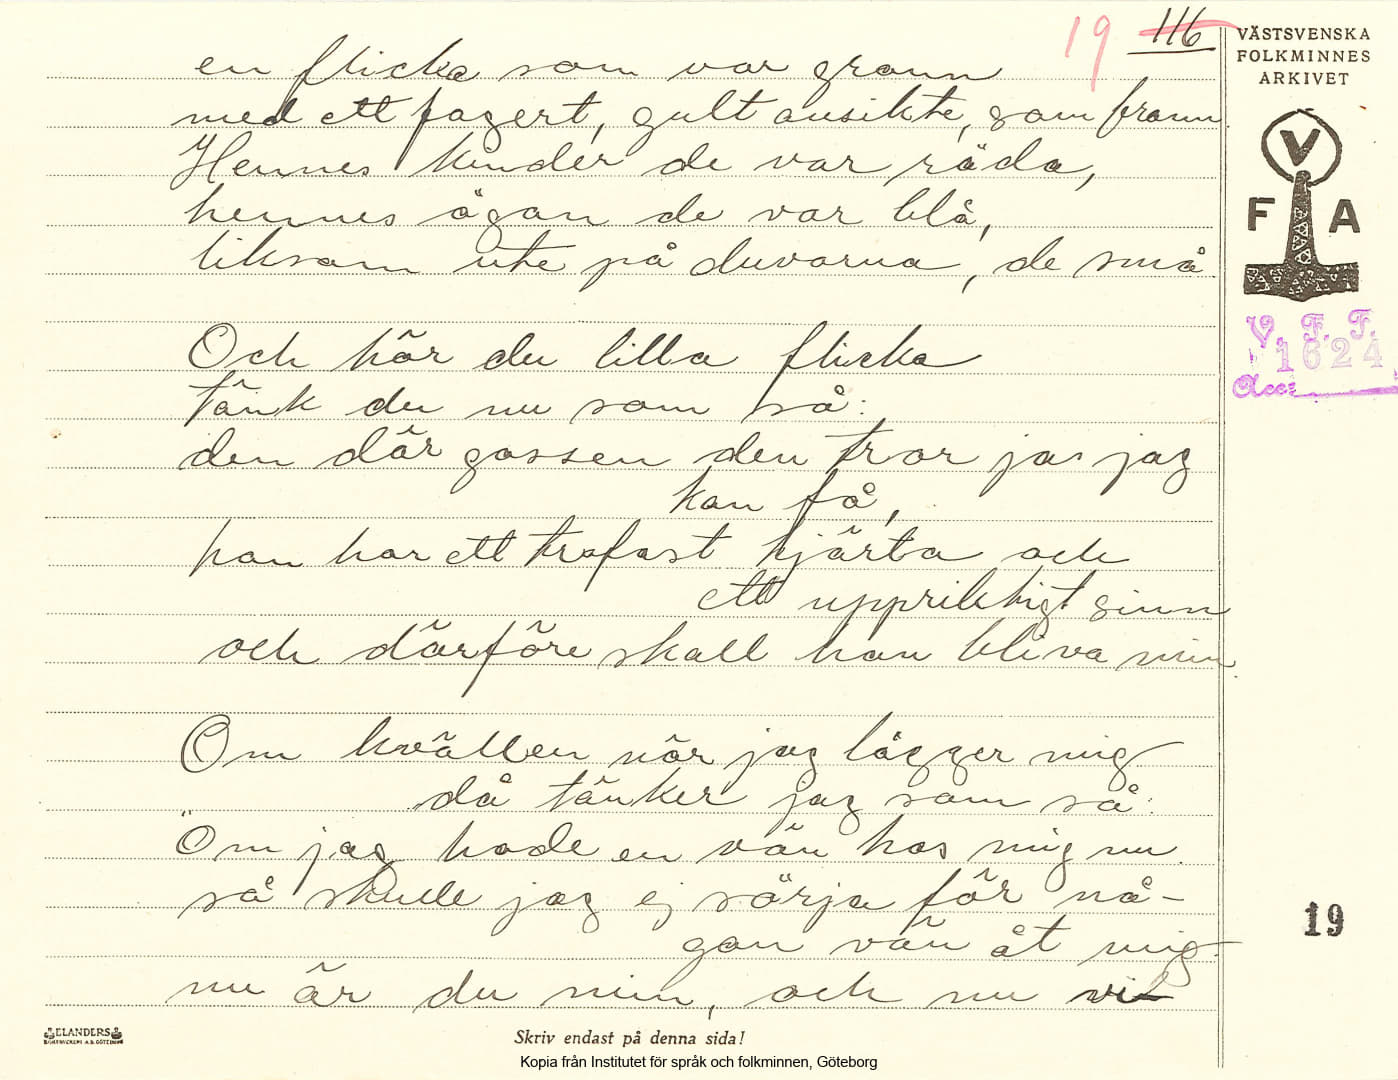 19 116
VÄSTSVENSKA
FOLKMINNES
ARKIVET
V
F A
V. F. F.
1624
Acc:
en flicka som var grann
med ett fagert, gult ansikte, som brann.
Hennes kinder de var röda,
hennes ögon de var blå,
liksom ute på duvorna, de små
Och hör du lilla flicka
tänk du nu som så:
den där gossen den tror ja jag
kan få,
han har ett trofast hjärta och
ett uppriktigt sinn
och därföre skall han bliva min.
Om kvällen när jag lägger mig
då tänker jag som så:
"Om jag hade en vän hos mig nu
så skulle jag ej sörja för nå-
gon vän åt mig
nu är du min, och nu vi
19
ELANDERS
BOKTRYCKERI A.B. GÖTEBORG
Skriv endast på denna sida!
Kopia från Institutet för språk och folkminnen, Göteborg